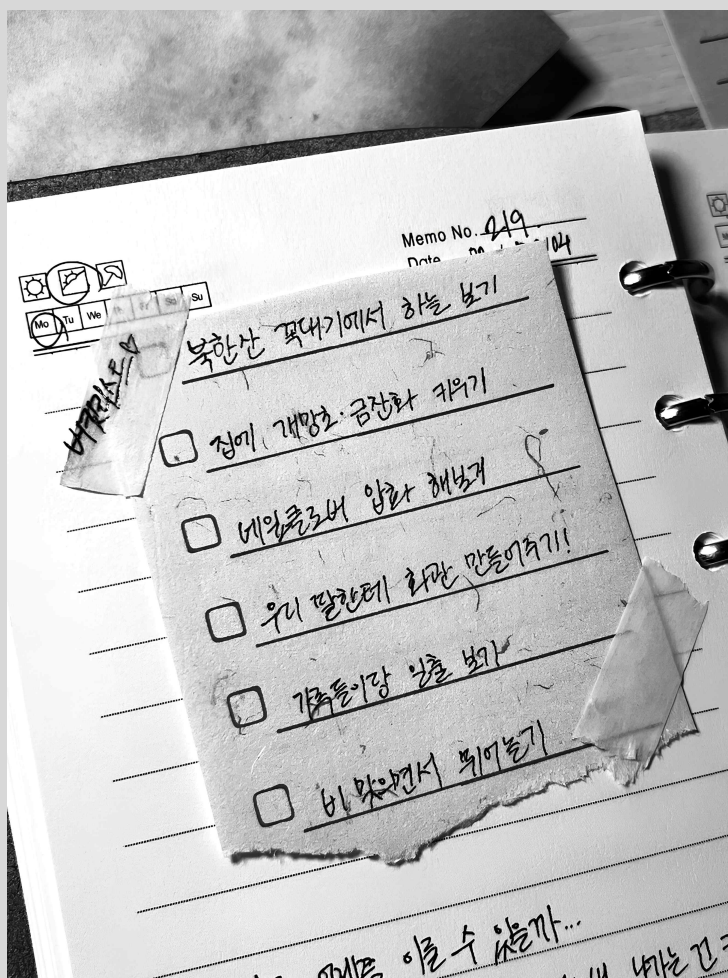 Memo No. 219
Date
Mo Tu We Th Fr Sa Su
버킷리스트♡
북한산 꼭대기에서 하늘 보기
집에 개망초·금잔화 키우기
네잎클로버 압화 해보기
우리 딸한테 화관 만들어주기!
가족들이랑 일출 보기
비 맞으면서 뛰어놀기
이룰 수 있을까...